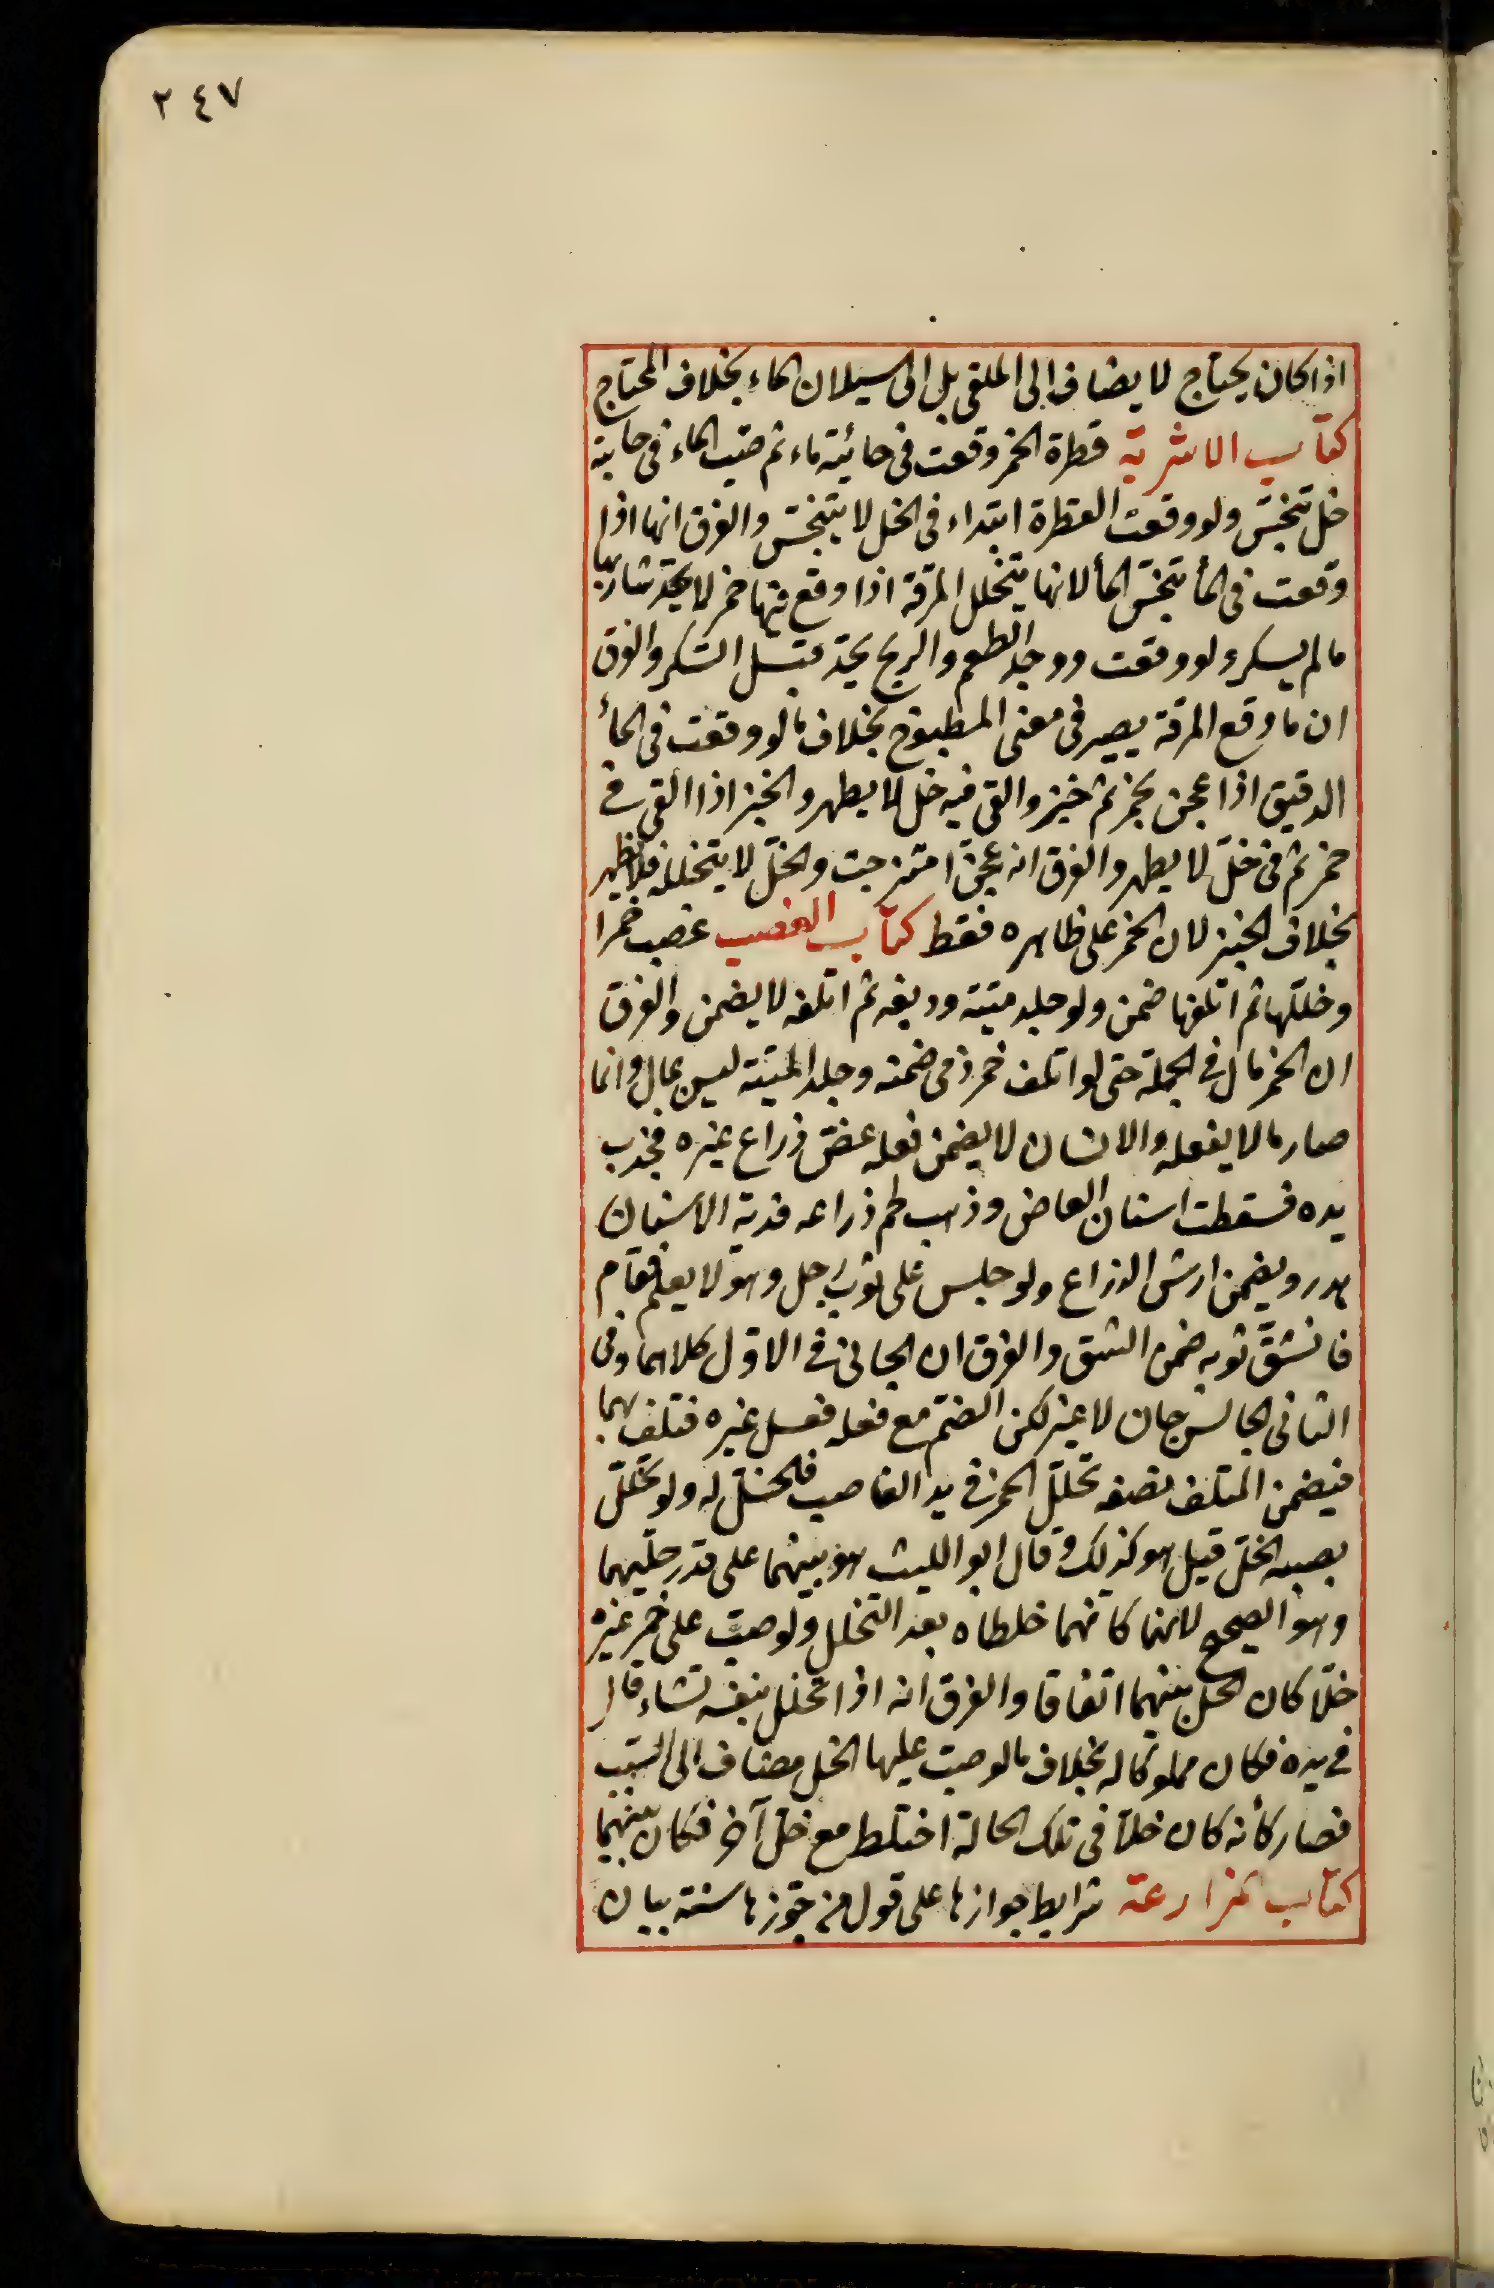 ٢٤٧
اذا كان يحتاج لا يضاف الى الملقى بل الى سيلان الماء بخلاف المحتاج
كتاب الاشربة قطرة الخمر وقعت فى خابئية ماء ثم صب الماء فى خابية
خل تنجس ولو وقعت القطرة ابتداء فى الخل لا يتنجس والفرق انها اذا
وقعت فى الماء تنجس الماء لانها يتخلل المرقة اذا وقع فيها خمر لا يحد شاربها
مالم يسكر ولو وقعت ووجد الطعم والريح يحد قبل السكر والفرق
ان ما وقع المرقة يصير فى معنى المطبوخ بخلاف ما لو وقعت فى الماء
الدقيق اذا عجن بخمر ثم خبز والقى فيه خل لا يطهر والخبز اذا القى فى
خمر ثم فى خل لا يطهر والفرق انه عجن امتزجت والخل لا يتخلله فلا يطهر
بخلاف الخبز لان الخمر على ظاهره فقط كتاب الغصب غصب خمرا
وخللها ثم اتلفها ضمن ولو جلد ميتة ودبغه ثم اتلفه لا يضمن والفرق
ان الخمر مال فى الجملة حتى لو اتلف خمر ذمى ضمنه وجلد الميتة ليس بمال وانما
صار مالا بفعله والانسان لا يضمن فعله عض ذراع غيره فجذب
يده فسقطت اسنان العاض وذهب لحم ذراعه فدية الاسنان
هدر ويضمن ارش الذراع ولو جلس على ثوب رجل وهو لا يعلم فقام
فانشق ثوبه ضمن الشق والفرق ان الجانى فى الاول كلاهما وفى
الثانى الجالس جان لا غير لكن انضم مع فعله فعل غيره فتلف بهما
فيضمن المتلف نصفه تخلل الخمر فى يد الغاصب فالخل له ولو تخلل
بصبه الخل قيل هو كذلك وقال ابو الليث هو بينهما على قدر خليهما
وهو الصحيح لانهما كانهما خلطاه بعد التخلل ولو صب على خمر غيره
خلا كان الخل بينهما اتفاقا والفرق انه اذا تخلل بنفسه
فى يده فكان مملوكا له بخلاف ما لو صب عليها الخل مضاف الى السبب
فصار كأنه كان خلا فى تلك الحالة اختلط مع خل آخر فكان بينهما
كتاب المزارعة شرايط جوازها على قول من جوزها ستة بيان